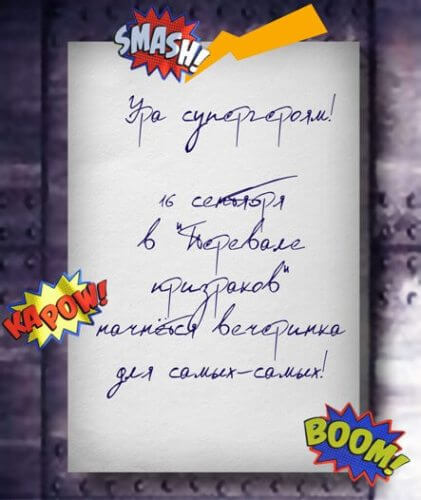 SMASH!
Ура супергероям!
16 сентября
в "Перевале
призраков"
KAPOW!
начнётся вечеринка
для самых-самых!
BOOM!